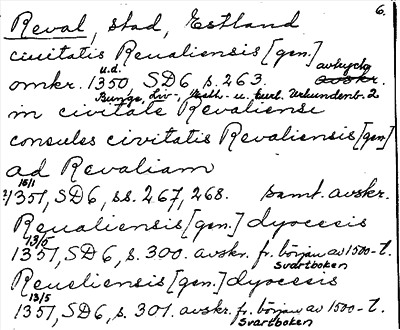 6.
Reval, stad, Estland
civitatis Reualiensis [gen.]
u.d. avtryck
omkr. 1350 SD6, s. 263. avskr.
Bunge, Liv-, Esth- u. Curl. Urkundenb. 2
in civitate Revaliensi
consules civitatis Revaliensis [gen.]
ad Revaliam
15/1
1351, SD6, ss. 267, 268. samt. avskr.
Reualiensis [gen.] dyocesis
13/5
1351, SD6, s. 300. avskr. fr. början av 1500-t.
Svartboken
Reueliensis [gen.] dyocesis
13/5
1351, SD6, s. 301. avskr. fr. början av 1500-t.
Svartboken